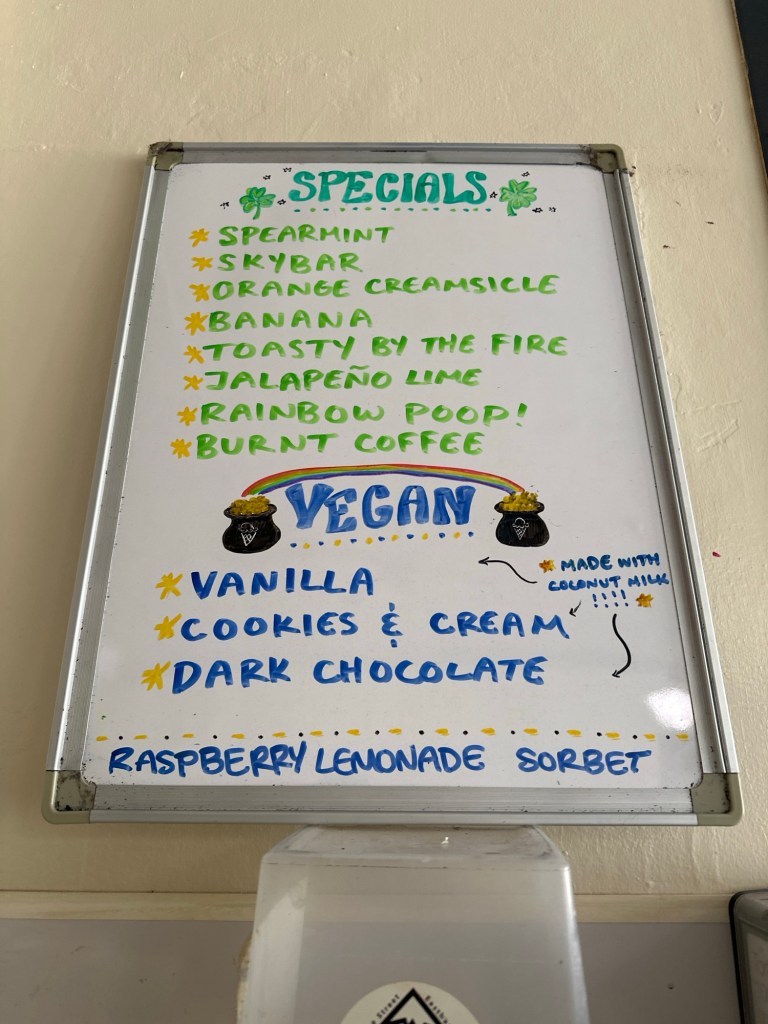 SPECIALS
SPEARMINT
SKYBAR
ORANGE CREAMSICLE
BANANA
TOASTY BY THE FIRE
JALAPEÑO LIME
RAINBOW POOP!
BURNT COFFEE
VEGAN
MADE WITH
COCONUT MILK
!!!!
VANILLA
COOKIES & CREAM
DARK CHOCOLATE
RASPBERRY LEMONADE SORBET
Street